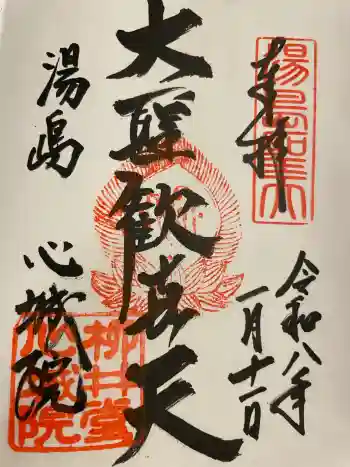 奉拝
令和八年
一月十一日
大聖歓喜天
湯島
心城院
湯島聖天
柳井堂
心城院